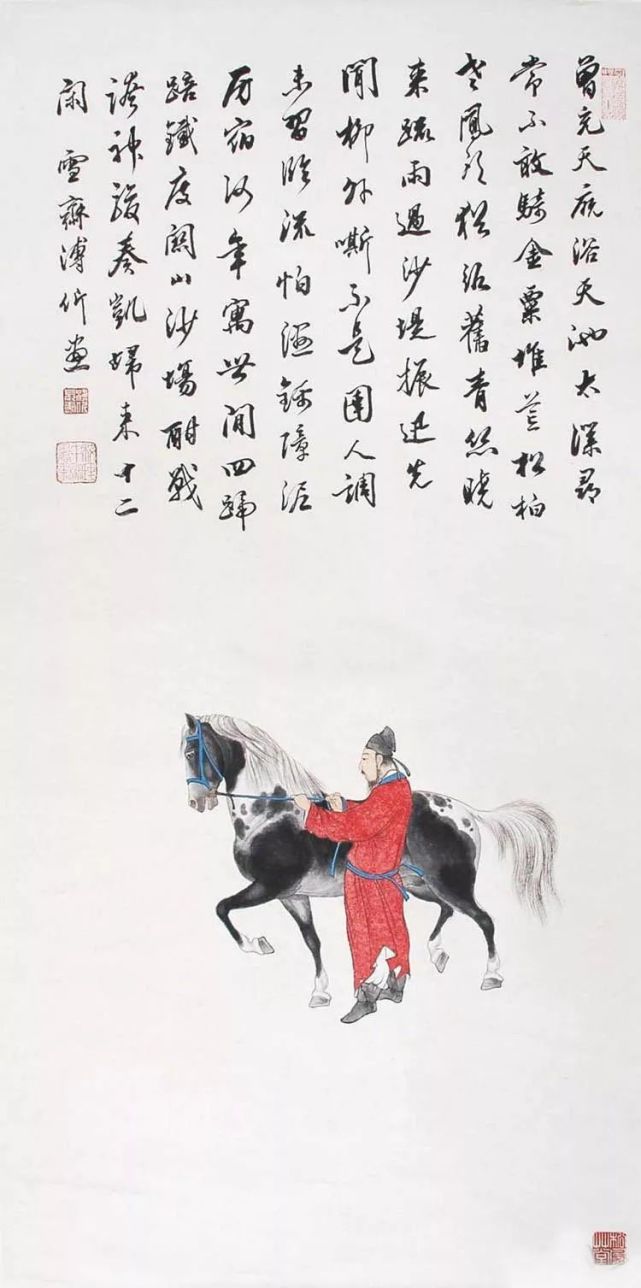 曾充天廄浴天池太潔尋
常不敢騎金粟堆荒松柏
老鳳頭猶絡舊青絲曉
來疏雨過沙堤振迅先
聞柳外嘶不是圉人調
未習臨流怕濕錦障泥
房宿何年寓世間四蹄
踣鐵度關山沙場酣戰
誇神駿奏凱歸來十二
閑 雪齋溥伒畫